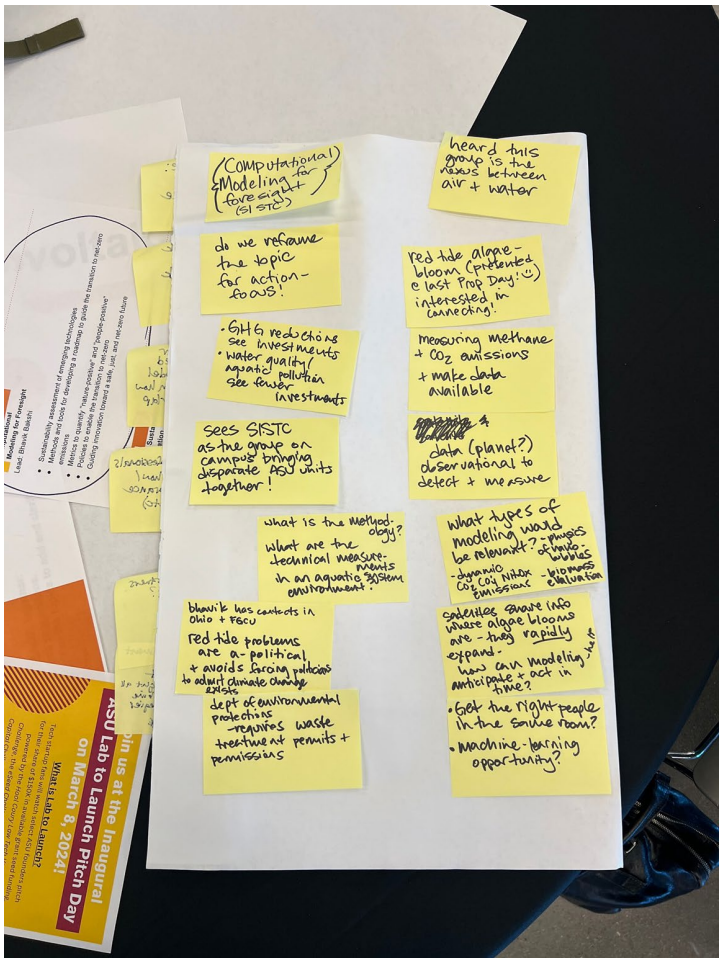 (Computational)
Modeling for
foresight
(SISTC)
do we reframe
the topic
for action-
focus!
• GHG reductions
see investments
• water quality/
aquatic pollution
see fewer
investments
sees SISTC
as the group on
campus bringing
disparate ASU units
together!
what is the method-
ology?
what are the
technical measure-
ments
in an aquatic system
environment?
bhavik has contacts in
Ohio + FGCU
red tide problems
are a-political
+ avoids forcing politicians
to admit climate change
exists
dept of environmental
protections
- requires waste
treatment permits +
permissions
heard this
group is the
nexus between
air + water
red tide algae-
bloom (presented
@ last Prop Day! :)
interested in
connecting!
measuring methane
+ CO2 emissions
+ make data
available
data (planet?)
observational to
detect + measure
What types of
modeling would
be relevant?
- physics
of nano-
bubbles
- dynamic
emissions
- biomass
evaluation
satellites share info
where algae blooms
are - they rapidly
expand.
how can modeling
anticipate + act in
time?
• Get the right people
in the same room?
• machine-learning
opportunity?
Modeling for Foresight
Lead: Bhavik Bakshi
• Sustainability assessment of emerging technologies
• Methods and tools for developing a roadmap to guide the transition to net-zero
emissions
• Metrics to quantify "nature-positive" and "people-positive"
• Policies to enable the transition to net-zero
• Guiding innovation toward a safe, just, and net-zero future
Join us at the Inaugural
ASU Lab to Launch Pitch Day
on March 8, 2024!
What is Lab to Launch?
Tech startup fans will watch select ASU founders pitch
for their share of $150K in available grant seed funding,